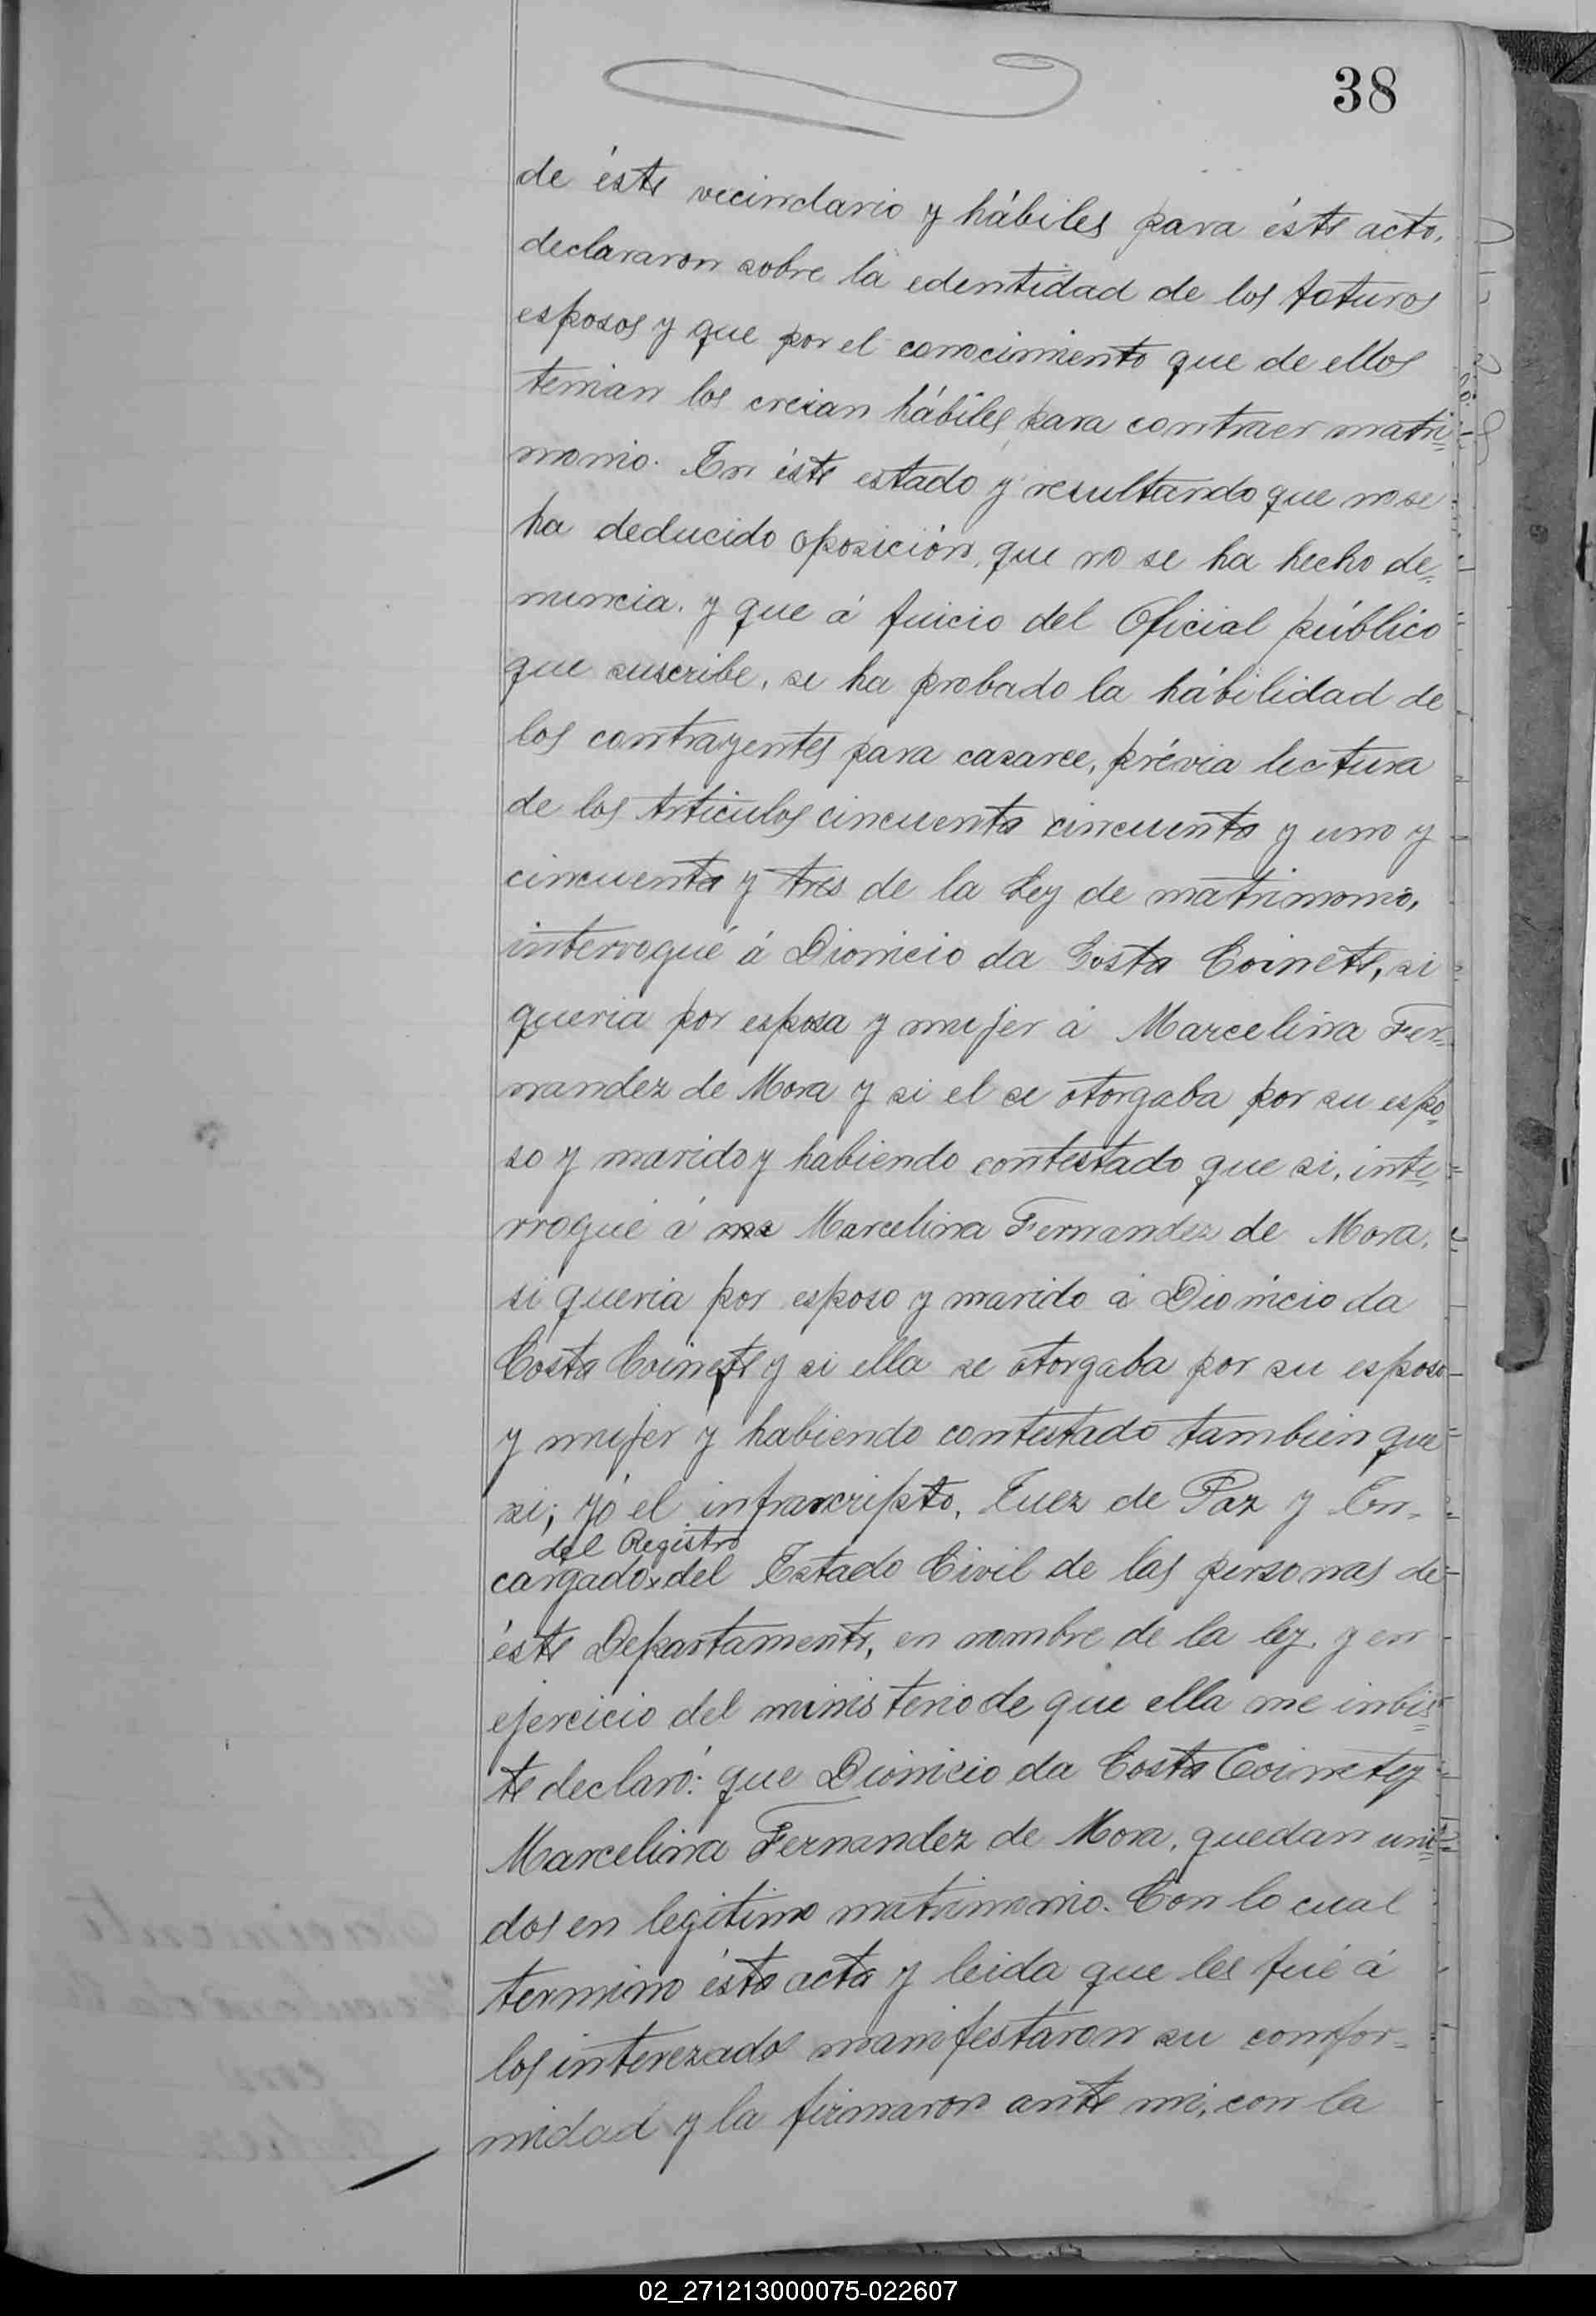 38
de éste vecindario y hábiles para éste acto,
declararon sobre la edentidad de los foturos
esposos y que por el conocimiento que de ellos
tenian los creian hábiles para contraer matri=
monio. En éste estado y resultando que no se
ha deducido oposición, que no se ha hecho de=
nuncia, y que á juicio del Oficial público
que suscribe, se ha probado la hábilidad de
los contrayentes para casarce, prévia lectura
de los Articulos cincuenta cincuenta y uno y
cincuenta y tres de la Ley de matrimonio,
interrogué á Dionicio da Costa Coinete, si
queria por esposa y mujer á Marcelina Fer=
nandez de Mora y si el se otorgaba por su espo=
so y marido y habiendo contestado que si, inte=
rrogué á Marcelina Fernandez de Mora,
si queria por esposo y marido á Dionicio da
Costa Coinete y si ella se otorgaba por su esposa
y mujer y habiendo contestado tambien que
si; yó el infrascripto, Juez de Paz y En=
del Registro
cargado x del Estado Civil de las personas de
éste Departamento, en nombre de la ley y en
ejercicio del ministerio de que ella me inbis=
te declaró: que Dionicio da Costa Coinete y
Marcelina Fernandez de Mora, quedan uni=
dos en legitimo matrimonio. Con lo cual
termino ésta acta y leida que les fué á
los interezados manifestaron su comfor=
midad y la firmaron ante mi, con la
02_271213000075-022607